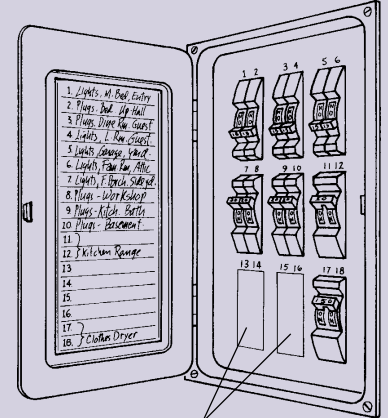 1. Lights, M. Bed, Entry
2. Plugs. Bed. Up Hall
3. Plugs. Dine Rm. Guest
4. Lights, L. Rm. Guest
5. Lights Garage, Yard
6. Lights, Fam. Rm, Attic
7. Lights, F. Porch,
8. Plugs - Workshop
9. Plugs - Kitch. Bath
10. Plugs - Basement
11.
12. } Kitchen Range
13
14
15.
16.
17.
18. } Clothes Dryer
1 2
3 4
5 6
7 8
9 10
11 12
13 14
15 16
17 18